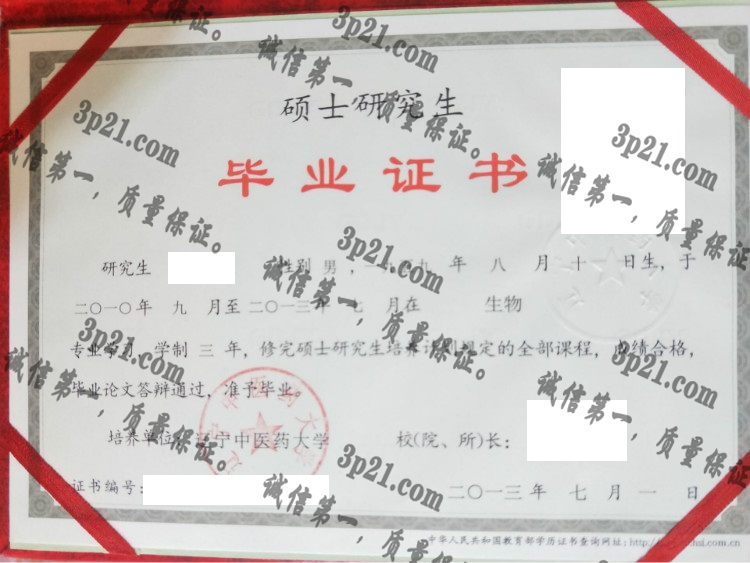 硕士研究生
毕业证书
研究生 性别 男，一九 九 年 八 月 十一 日生，于
二〇一〇年 九 月至二〇一三年 七 月在 生物
专业学习，学制 三 年，修完硕士研究生培养计划规定的全部课程，成绩合格，
毕业论文答辩通过，准予毕业。
培养单位：辽宁中医药大学 校(院、所)长：
证书编号： 二〇一三年 七 月 一 日
中华人民共和国教育部学历证书查询网址：
3p21.com
诚信第一，质量保证。
3p21.com
诚信第一，质量保证。
3p21.com
诚信第一，质量保证。
3p21.com
诚信第一，质量保证。
3p21.com
诚信第一，质量保证。
3p21.com
诚信第一，质量保证。
3p21.com
诚信第一，质量保证。
3p21.com
诚信第一，质量保证。